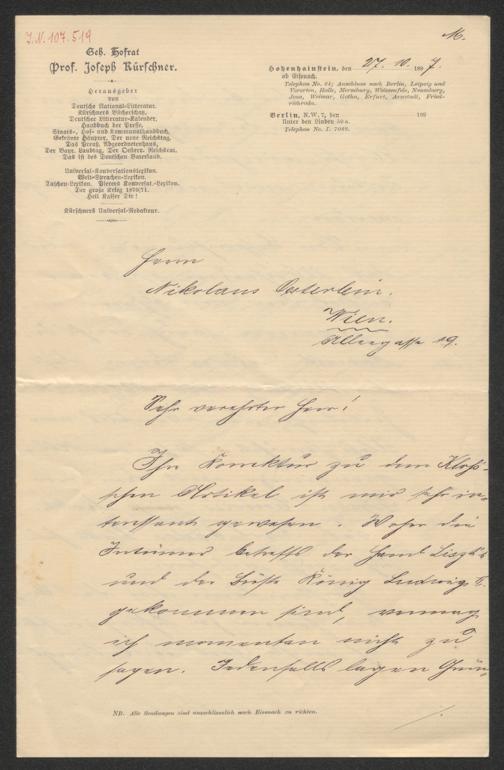 J.N. 107.519
M.
Geh. Hofrat
Prof. Joseph Kürschner.
Herausgeber
von
Deutsche National-Litteratur.
Kürschners Bücherschatz.
Deutscher Litteratur-Kalender.
Handbuch der Presse.
Staats-, Hof- und Kommunalhandbuch.
Gekrönte Häupter. Der neue Reichstag.
Das Preuß. Abgeordnetenhaus.
Der Bayr. Landtag. Der Oesterr. Reichsrat.
Das ist des Deutschen Vaterland.
Universal-Konversationslexikon.
Welt-Sprachen-Lexikon.
Taschen-Lexikon. Pierers Konversat.-Lexikon.
Der große Krieg 1870/71.
Heil Kaiser Dir!
Kürschners Universal-Redakteur.
Hohenhainstein, den 27. 10. 1897.
ob Eisenach.
Telephon No. 64; Anschluss nach Berlin, Leipzig und
Vororten, Halle, Merseburg, Weissenfels, Naumburg,
Jena, Weimar, Gotha, Erfurt, Arnstadt, Fried-
richroda.
Berlin, N.W. 7, den 189
Unter den Linden
Telephon No. I.
Herrn
Nikolaus Oesterlein.
Wien.
Alleegasse 19.
Sehr verehrter Herr!
Ihre Korrektur zu dem Kloss-
schen Artikel ist mir sehr in-
teressant gewesen. Woher die
Irrtümer betreffs der Hand Liszt's
und der Büste König Ludwig II.
gekommen sind, vermag
ich momentan nicht zu
sagen. Jedenfalls lagen
NB. Alle Sendungen sind ausschliesslich nach Eisenach zu richten.